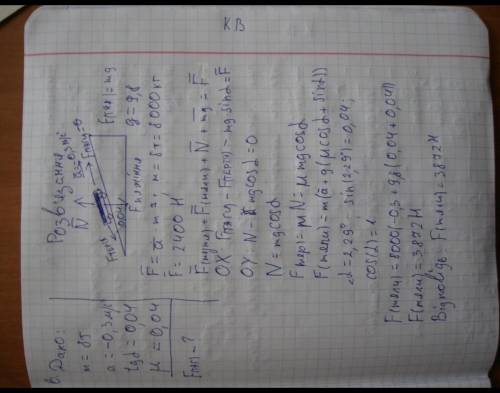 КВ
6. Дано:
m = 8т
a = -0,3 м/с
tg α = 0,04
μ = 0,04
F(тяги) - ?
Розв'язання
N
F(тер) = mg
0,04
F тяжіння
g = 9,8
F̄ = ā m m = 8т = 8000 кг
F̄ = 2400 H
F̄(тертя) + F̄(тяги) + N̄ + m̄g = F̄
OX F̄(тяги) - F̄(тертя) - mg sinα = F̄
OY N - mg cosα = 0
N = mg cosα
F(тер) = μ N = μ mg cosα
F(тяги) = m(ā + g(μ cosα + sinα))
α = 2,29° sin(2,29°) = 0,04,
cos(α) = 1
F(тяги) = 8000(-0,3 + 9,8(0,04 + 0,04))
F(тяги) = 3872 H
Відповідь F(тяги) = 3872 H